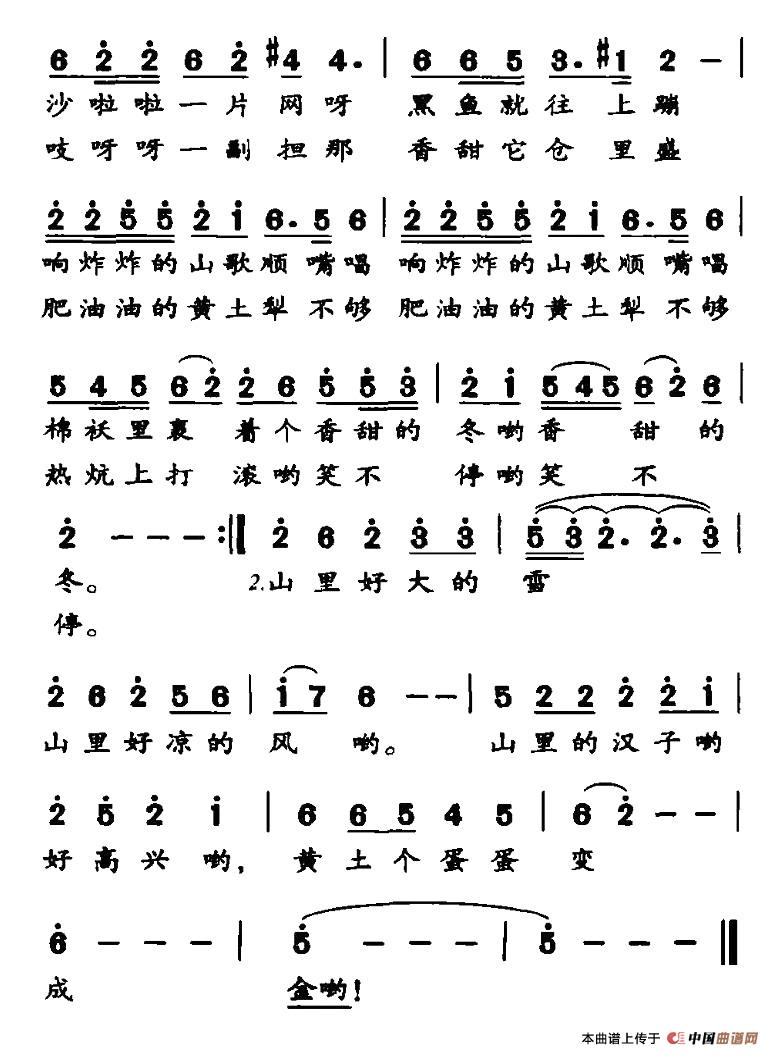 6 2 2 6 2 #4 4. | 6 6 5 3. #1 2 — |
沙啦啦一片网呀 黑鱼就往上蹦
吱呀呀一副担那 香甜它仓里盛
2 2 5 5 2 1 6. 5 6 | 2 2 5 5 2 1 6. 5 6 |
响炸炸的山歌顺嘴唱 响炸炸的山歌顺嘴唱
肥油油的黄土犁不够 肥油油的黄土犁不够
5 4 5 6 2 2 6 5 5 3 | 2 1 5 4 5 6 2 6 |
棉袄里裹 着个香甜的 冬哟香 甜的
热炕上打 滚哟笑不 停哟笑 不
2 — — — :| 2 6 2 3 3 | 5 3 2. 2. 3 |
冬。 2.山里好大的 雷
停。
2 6 2 5 6 | 1 7 6 — — | 5 2 2 2 2 1 |
山里好凉的 风 哟。 山里的汉子哟
2 5 2 1 | 6 6 5 4 5 | 6 2 — — |
好高兴哟, 黄土个蛋蛋 变
6 — — — | 5 — — — | 5 — — — ‖
成 金哟!
本曲谱上传于 中国曲谱网